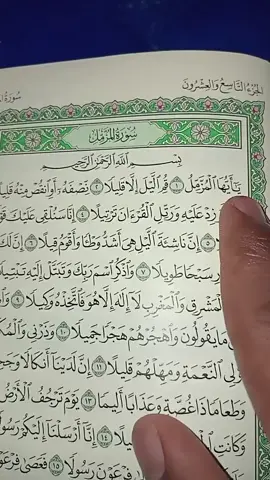 الجزء التاسع والعشرون
سورة
سورة المزمل
بسم الله الرحمن الرحيم
يَٰٓأَيُّهَا ٱلۡمُزَّمِّلُ ١ قُمِ ٱلَّيۡلَ إِلَّا قَلِيلٗا ٢ نِّصۡفَهُۥٓ أَوِ ٱنقُصۡ مِنۡهُ قَلِيلًا
زِدۡ عَلَيۡهِ وَرَتِّلِ ٱلۡقُرۡءَانَ تَرۡتِيلًا ٤ إِنَّا سَنُلۡقِي عَلَيۡكَ
٥ إِنَّ نَاشِئَةَ ٱلَّيۡلِ هِيَ أَشَدُّ وَطۡـٔٗا وَأَقۡوَمُ قِيلًا ٦ إِنَّ لَكَ
سَبۡحٗا طَوِيلٗا ٧ وَٱذۡكُرِ ٱسۡمَ رَبِّكَ وَتَبَتَّلۡ إِلَيۡهِ تَبۡتِيلٗا
ٱلۡمَشۡرِقِ وَٱلۡمَغۡرِبِ لَآ إِلَٰهَ إِلَّا هُوَ فَٱتَّخِذۡهُ وَكِيلٗا ٩
مَا يَقُولُونَ وَٱهۡجُرۡهُمۡ هَجۡرٗا جَمِيلٗا ١٠ وَذَرۡنِي
ٱلنَّعۡمَةِ وَمَهِّلۡهُمۡ قَلِيلًا ١١ إِنَّ لَدَيۡنَآ أَنكَالٗا
وَطَعَامٗا ذَا غُصَّةٖ وَعَذَابًا أَلِيمٗا ١٣ يَوۡمَ تَرۡجُفُ ٱلۡأَرۡضُ
وَكَانَتِ ١٤ إِنَّآ أَرۡسَلۡنَآ إِلَيۡكُمۡ
فِرۡعَوۡنَ رَسُولٗا ١٥ فَعَصَىٰ